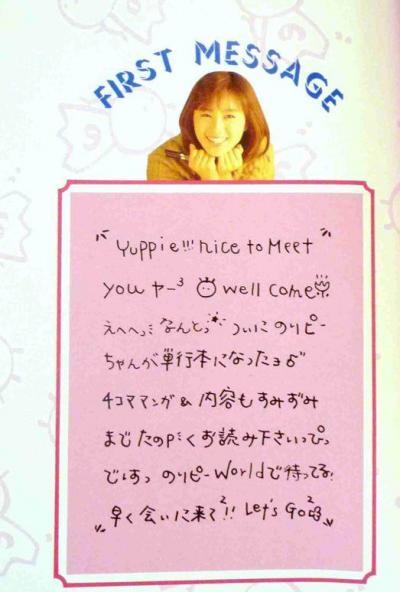 FIRST MESSAGE
"Yuppie!!! nice to Meet
you ヤー³ well come
えへへっ なんとっ ついに のりピー
ちゃんが 単行本になったョ♂"
4コママンガ & 内容もすみずみ
までたのPくお読み下さいっぴっ
ではっ のりピーWorldで待ってる!
"早く会いに来て²!! Let's Go²"